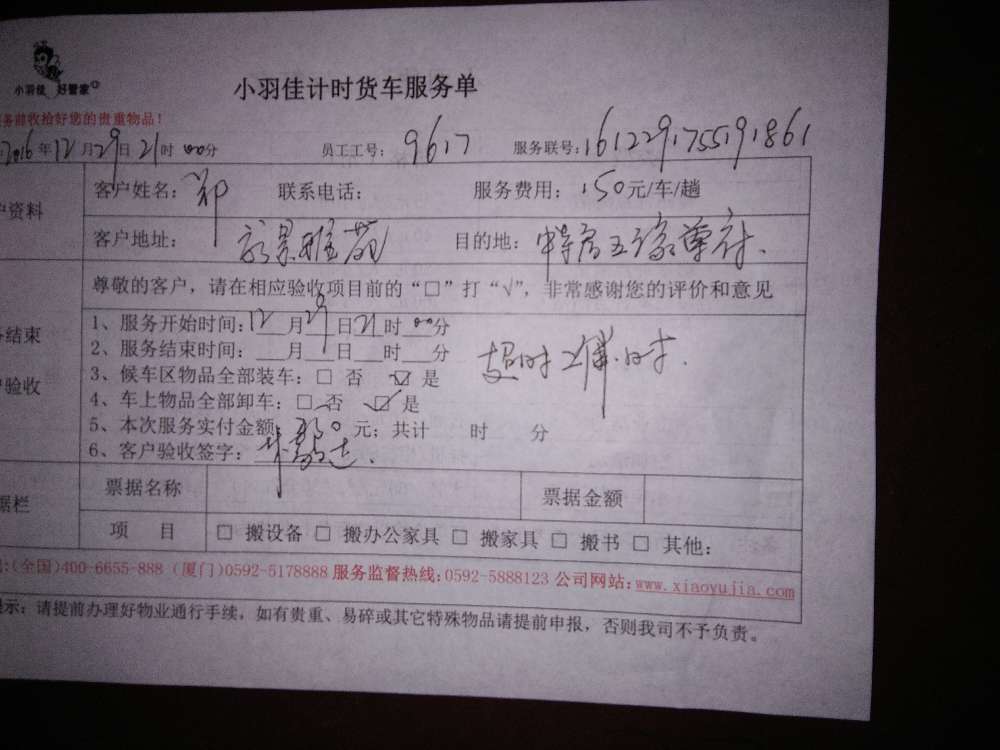 小羽佳 好管家
小羽佳计时货车服务单
务前收拾好您的贵重物品！
2016年12月29日21时00分 员工工号：9617 服务联号：1612291755191861
户资料
客户姓名：郑 联系电话： 服务费用：150元/车/趟
客户地址： 景雅苑 目的地： 五缘
尊敬的客户，请在相应验收项目前的“□”打“√”，非常感谢您的评价和意见
务结束
户验收
1、服务开始时间：12月29日21时00分
2、服务结束时间：___月___日___时___分
超时 小时.
3、候车区物品全部装车：□ 否 ☑ 是
4、车上物品全部卸车：□ 否 ☑ 是
5、本次服务实付金额 元；共计 时 分
6、客户验收签字：
据栏
票据名称 票据金额
项 目 □ 搬设备 □ 搬办公家具 □ 搬家具 □ 搬书 □ 其他：
：(全国)400-6655-888 (厦门)0592-5178888 服务监督热线：0592-5888123 公司网站：www.xiaoyujia.com
示：请提前办理好物业通行手续，如有贵重、易碎或其它特殊物品请提前申报，否则我司不予负责。